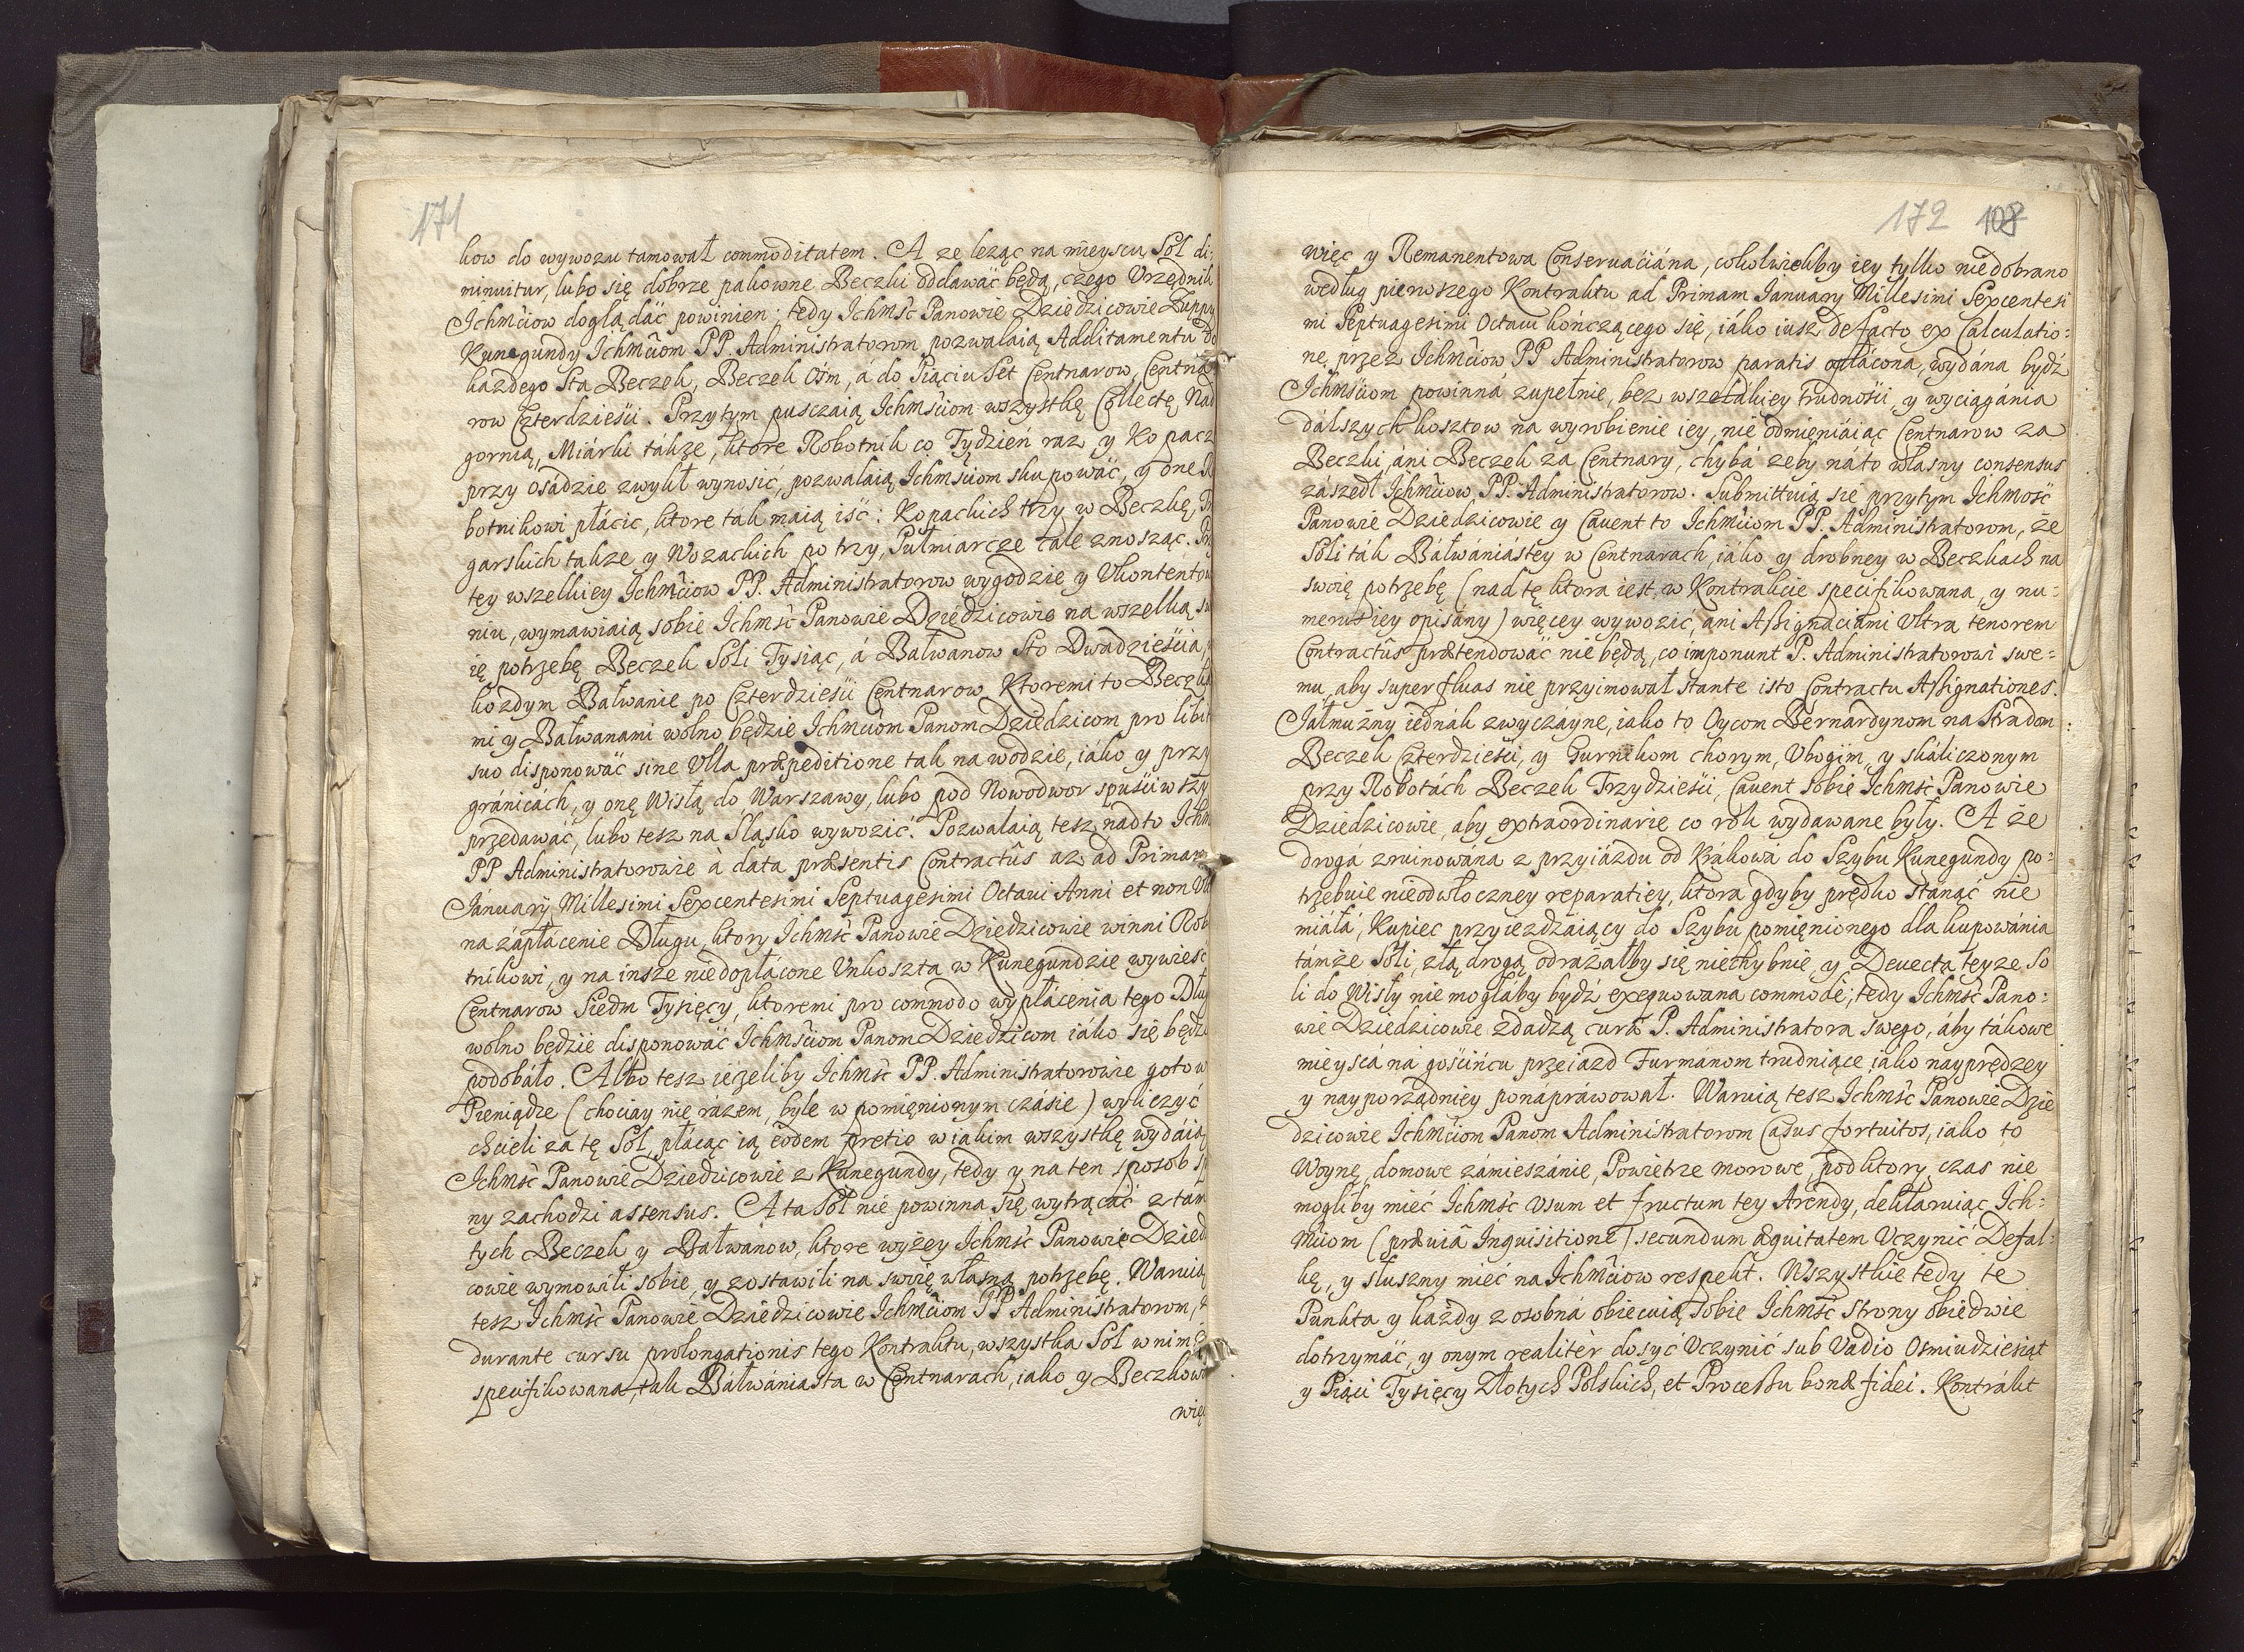 171
kow do wywozu tamował commoditatem. A ze leząc na mieyscu Sol di-
minuitur, lubo się dobrze pakowne Beczki oddawać będą, czego Vrzędnik
Ichmciow doglądać powinien: tedy Ichmść Panowie Dziedzicowie Zuppy
Kunegundy Ichmciom PP. Administratorom pozwalaią Additamentu do
kazdego Sta Beczek, Beczek Ośm, á do Piąciu Set Centnarow, Centna
row Czterdzieści. Przytym pusczaią Ichmściom wszystkę Collectę Nad
gornią, Miárki tákze, ktore Robotnik co Tydzień raz y Kopacz
przy osádzie zwykł wynosic, pozwalaią Ichmściom skupowáć, y one Ro
botnikowi płácic, ktore tak maią iść: Kopackich trzy w Beczkę,
garskich takze y Wozackich po trzy, Pułmiarcze cale znosząc. Przy
tey wszelkiey Ichmciow PP. Administratorow wygodzie y Vkontentowa
niu, wymawiaią sobie Ichmść Panowie Dziedzicowie na wszelką swo
ię potrzebę Beczek Soli Tysiąc, á Bałwanow Sto Dwadzieścia,
kozdym Bałwanie po Czterdzieści Centnarow. Ktoremi to Beczka
mi y Bałwanami wolno będzie Ichmciom Panom Dziedzicom pro libit
suo disponowáć sine Vlla præpeditione tak na wodzie, iáko y przy
gránicách, y onę Wisłą do Warszawy, lubo pod Nowodwor spuściwszy
przedawáć, lubo tesz na Sląsko wywozić. Pozwalaią tesz nadto Ichm
PP Administratorowie à data præsentis Contractûs az ad Primam
Januarÿ Millesimi Sexcentesimi Septuagesimi Octaui Anni et non Vlt
na zápłácenie Długu, ktory Ichmść Panowie Dziedzicowie winni Robo
tnikowi, y na insze niedopłácone Vnkoszta w Kunegundzie wywieść
Centnarow Siedm Tysięcy, ktoremi pro commodo wypłácenia tego Dług
wolno będzie disponowáć Ichmściom Panom Dziedzicom iáko się będzie
podobáło. Albo tesz iezeliby Ichmść PP. Administratorowie gotow
Pieniądze (chociay nie rázem, byle w pomięnionym czásie) wyliczyć
chcieli za tę Sol, płácąc ią eodem pretio w iakim wszystkę wydáią
Ichmść Panowie Dziedzicowie z Kunegundy, tedy y na ten sposob sp
ny zachodzi assensus. A ta Sol nie powinna się wytrącáć z tam
tych Beczek y Bałwánow, ktore wyżey Ichmść Panowie Dziedzi
cowie wymowili sobie, y zostawili na swoię własną potrzebę. Waruią
tesz Ichmść Panowie Dziedzicowie Ichmciom PP Administratorom,
durante cursu prolongationis tego Kontraktu, wszystka Sol w nim
specifikowana, tak Báłwániasta w Centnarach, iako y Beczkowa
więc
172 108
więc y Remanentowa Conseruaciána, cokolwiekby iey tylko niedobrano
według pierwszego Kontraktu ad Primam Januarÿ Millesimi Sexcentesi
mi Septuagesimi Octaui kończącego się, iáko iusz de facto ex Calculatio-
ne przez Ichmciow PP Administratorow paratis opłácona, wydána bydź
Ichmściom powinná zupełnie, bez wszelákiey trudności y wyciągánia
dálszych kosztow na wyrobienie iey, nie odmięniáiąc Centnarow za
Beczki, áni Beczek za Centnary, chybá zeby ná to własny consensus
zászedł Ichmciow PP. Administratorow. Submittuią się przytym Ichmość
Panowie Dziedzicowie y Cauent to Ichmciom PP. Administratorom, że
Soli ták Báłwániástey w Centnarach, iáko y drobney w Beczkach na
swoię potrzebę (nad tę ktora iest w Kontrakcie specifikowana, y nu-
merus iey opisány) więcey wywozić, ani Assignaciami Vltra tenorem
Contractûs prætendowáć nie będą, co imponunt P. Administratorowi swe-
mu, aby superfluas nie przyimował stante isto Contractu Assignationes.
Jałmużny iednák zwyczáyne, iako to Oycom Bernardynom na Stradom :
Beczek Czterdzieści, y Gurnikom chorym, Vbogim, y skáliczonym
przy Robotách Beczek Trzydzieści, Cauent sobie Ichmść Panowie
Dziedzicowie, aby extraordinarie co rok wydawane były. A że
drogá zruinowána z przyiázdu od Krákowá do Szybu Kunegundy po-
trzebuie nieodwłoczney reparatiey, ktora gdyby prędko stánąć nie
miáłá, Kupiec przyiezdzáiący do Szybu pomięnionego dla kupowánia
támże Soli, złą drogą odrazałby się niechybnie, y Deuecta teyze So
li do Wisły nie mogłáby bydź exequowana commodè; tedy Ichmść Pano-
wie Dziedzicowie zdadzą curæ P. Administratora swego, áby tákowe
mieyscá ná gościńcu przeiazd Furmánom trudniące iako nayprędzey
y nayporządniey ponápráwował. Waruią tesz Ichmść Panowie Dzie
dzicowie Ichmciom Panom Administratorom Casus fortuitos, iako to
Woynę, domowe zámieszánie, Powietrze morowe, pod ktory czas nie
mogliby mieć Ichmść Vsum et fructum tey Arendy, deklaruiąc Ich-
mciom (præuiâ Inquisitione) secundum æquitatem Vczynić Defal-
kę, y słuszny mieć na Ichmciow respekt. Wszystkie tedy te
Punkta y każdy z osobná obiecuią sobie Ichmść strony obiedwie
dotrzymáć, y onym realitèr dosyć Vczynić sub Vadio Osmiudziesiąt
y Piąci Tysięcy Złotych Polskich, et Processu bonæ fidei. Kontrákt